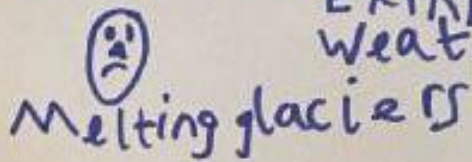 Weat
Melting glaciers